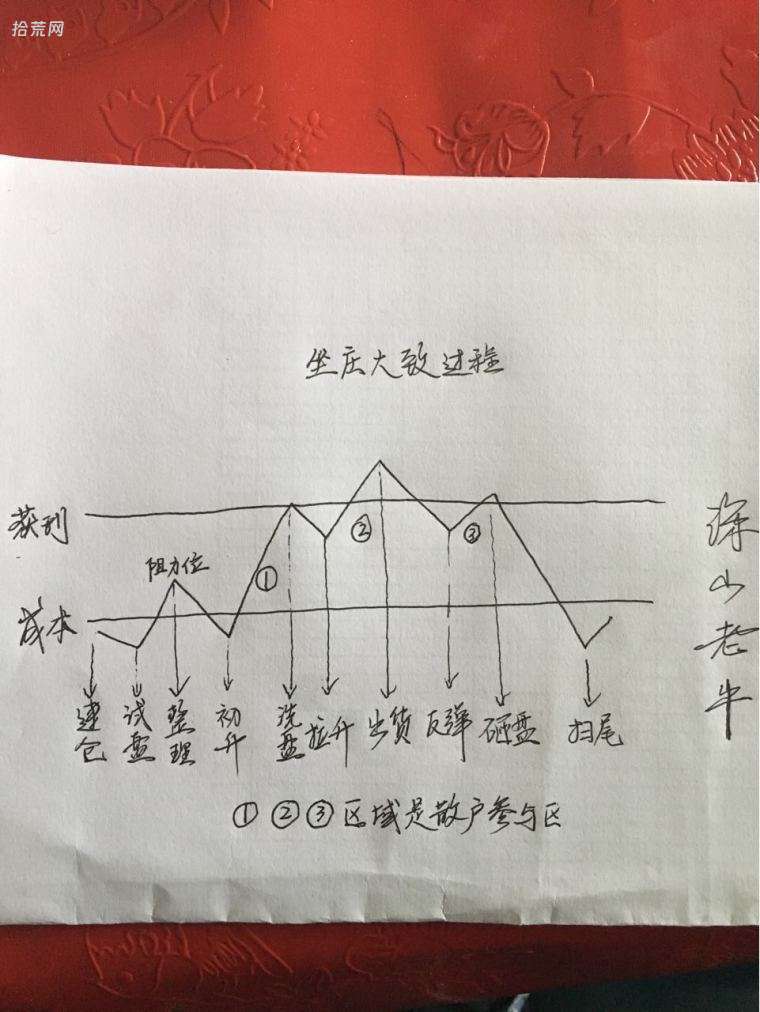 拾荒网
坐庄大致过程
获利
阻力位
①
②
③
成本
建仓
试盘
整理
初升
洗盘
拉升
出货
反弹
砸盘
扫尾
①②③区域是散户参与区
深山老牛